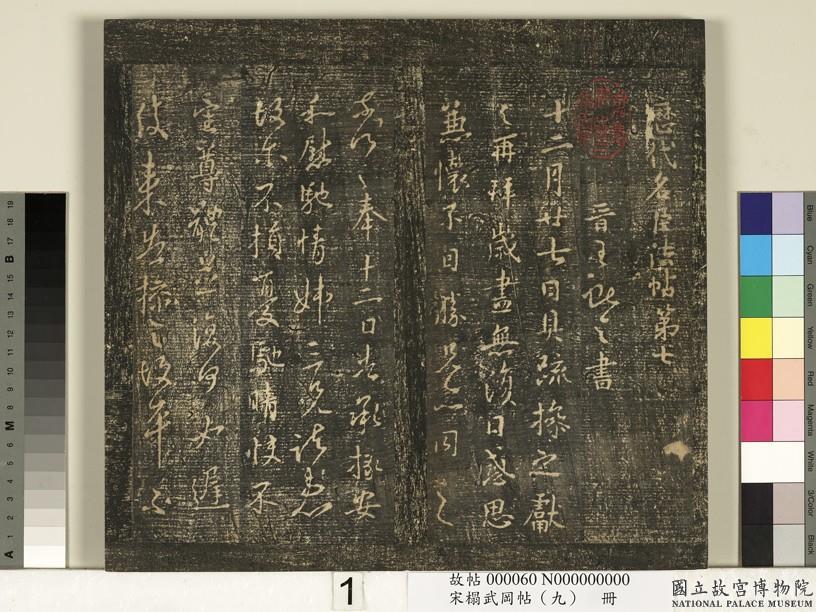 歷代名臣法帖第七
晉王獻之書
十二月廿七日具疏操之獻
之再拜歲盡無復日感思
兼懷不自勝
奉十二日告承極安
和慰馳情姊三兄諸患
故爾不損憂馳情
審尊體復何如遲
復來告操之故平
1
故帖 000060 N000000000
宋榻武岡帖（九） 冊
國立故宮博物院
NATIONAL PALACE MUSEUM
A 1 2 3 4 5 6 M 8 9 10 11 12 13 14 15 B 17 18 19
Blue
Cyan
Green
Yellow
Red
Magenta
White
3/Color
Black